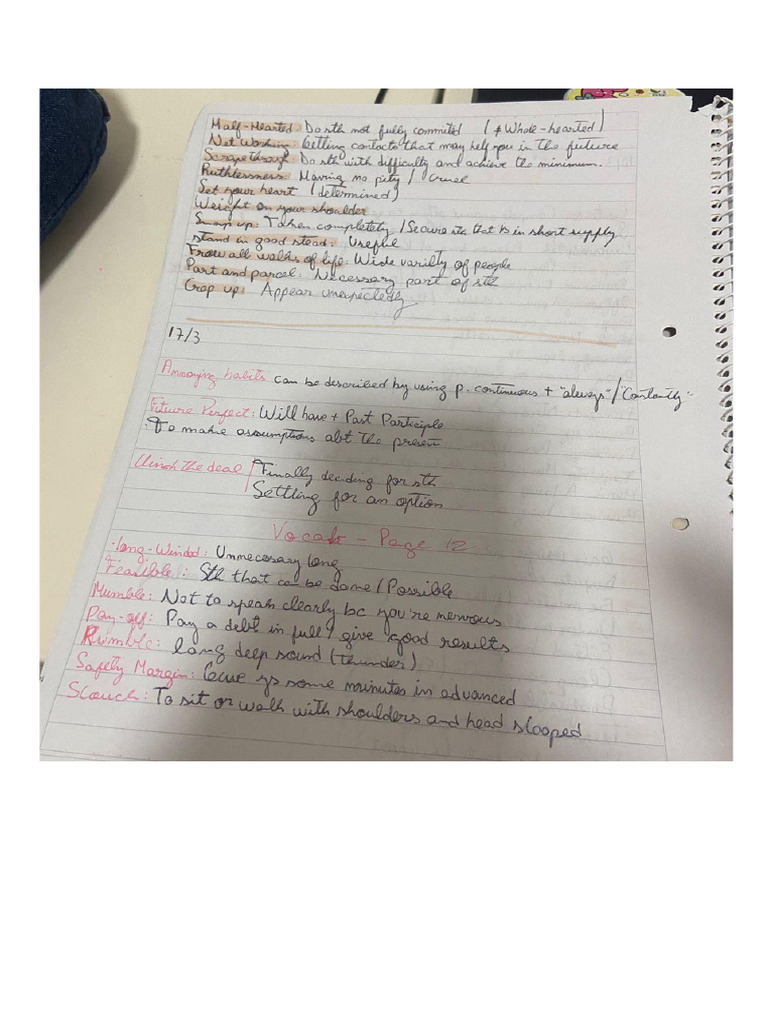 Half-Hearted: Do sth not fully commited (≠ Whole-hearted)
Net Working: Getting contacts that may help you in the future
Scrape through: Do sth with difficulty and achieve the minimum.
Ruthlessness: Having no pity / Cruel
Set your heart (determined)
Weight on your shoulder
Snap up: Taken completely / Secure sth that is in short supply
stand in good stead: Useful
From all walks of life: Wide varilty of people
Part and parcel: Necessary part of sth
Crop up: Appear unexpectedly
17/3
Annoying habits can be described by using p. continuous + "always"/"Constantly"
Future Perfect: Will have + Past Participle
: To make assumptions abt the present
Clinch the deal Finally deciding for sth
Settling for an option
Vocab - Page 12
·long-Winded: Unnecesary long
Feasible: Sth that can be done / Possible
Mumble: Not to speak clearly bc you're nervous
Pay-off: Pay a debt in full / give good results
Rumble: long deep sound (thunder)
Safety Margin: leave some minutes in advanced
Slouch: To sit or walk with shoulders and head slooped